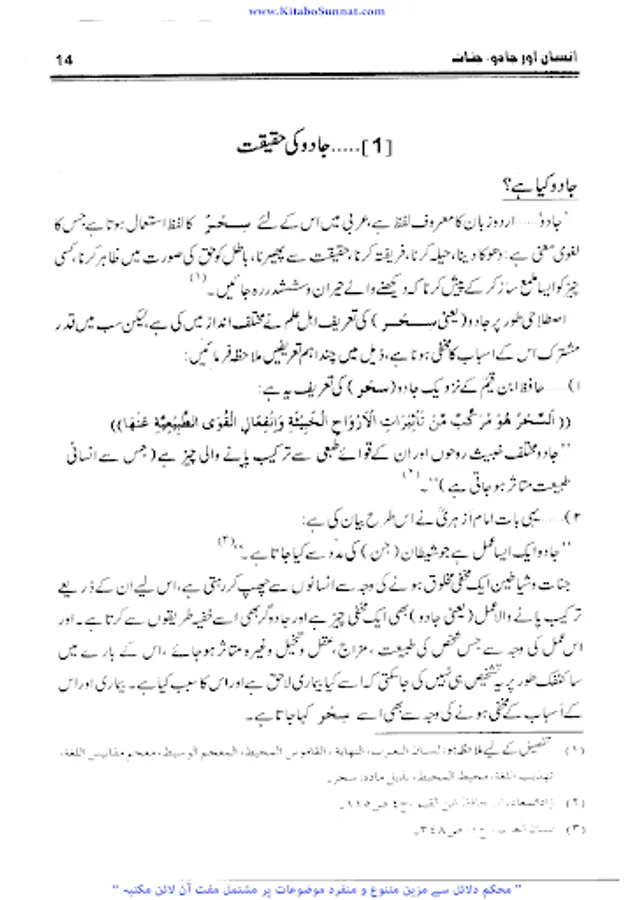 www.KitaboSunnat.com
انسان اور جادو، جنات
14
[1].....جادو کی حقیقت
جادو کیا ہے؟
'جادو'.....اردو زبان کا معروف لفظ ہے، عربی میں اس کے لئے سِحْرٌ کا لفظ استعمال ہوتا ہے جس کا
لغوی معنی ہے: دھوکا دینا، حیلہ کرنا، فریفتہ کرنا، حقیقت سے پھیرنا، باطل کو حق کی صورت میں ظاہر کرنا، کسی
چیز کو ایسا ملمع ساز کر کے پیش کرنا کہ دیکھنے والے حیران و ششدر رہ جائیں۔(۱)
اصطلاحی طور پر جادو (یعنی سِحْر) کی تعریف اہل علم نے مختلف انداز میں کی ہے، لیکن سب میں قدر
مشترک اس کے اسباب کا مخفی ہونا ہے، ذیل میں چند اہم تعریفیں ملاحظہ فرمائیں:
۱).....حافظ ابن قیمؒ کے نزدیک جادو (سِحْر) کی تعریف یہ ہے:
((اَلسِّحْرُ هُوَ مُرَكَّبٌ مِّنْ تَأْثِيرَاتِ الْأَرْوَاحِ الْخَبِيثَةِ وَانْفِعَالِ الْقُوَى الطَّبِيعِيَّةِ عَنْهَا))
''جادو مختلف خبیث روحوں اور ان کے قوائے طبعی سے ترکیب پانے والی چیز ہے (جس سے انسانی
طبیعت متاثر ہو جاتی ہے)''۔(۲)
۲).....یہی بات امام ازہریؒ نے اس طرح بیان کی ہے:
''جادو ایک ایسا عمل ہے جو شیطان (جن) کی مدد سے کیا جاتا ہے۔''(۳)
جنات و شیاطین ایک مخفی مخلوق ہونے کی وجہ سے انسانوں سے چھپ کر رہتی ہے، اس لیے ان کے ذریعے
ترکیب پانے والا عمل (یعنی جادو) بھی ایک مخفی چیز ہے اور جادوگر بھی اسے خفیہ طریقوں سے کرتا ہے۔ اور
اس عمل کی وجہ سے جس شخص کی طبیعت، مزاج، عقل و تخیل وغیرہ متاثر ہو جائے، اس کے بارے میں
سائنٹفک طور پر یہ تشخیص ہی نہیں کی جا سکتی کہ اسے کیا بیماری لاحق ہے اور اس کا سبب کیا ہے۔ بیماری اور اس
کے اسباب کے مخفی ہونے کی وجہ سے بھی اسے سِحْر کہا جاتا ہے۔
(۱) تفصیل کے لیے ملاحظہ ہو: لسان العرب، النهاية، القاموس المحيط، المعجم الوسيط، معجم مقاييس اللغة،
تهذيب اللغة، محيط المحيط، بذيل مادہ: سحر۔
(۲) زادالمعاد، از حافظ ابن القیم، ج٤ ص۱۱٥۔
(۳) لسان العرب، ج ص٣٤٨۔
" محکم دلائل سے مزین متنوع و منفرد موضوعات پر مشتمل مفت آن لائن مکتبہ "